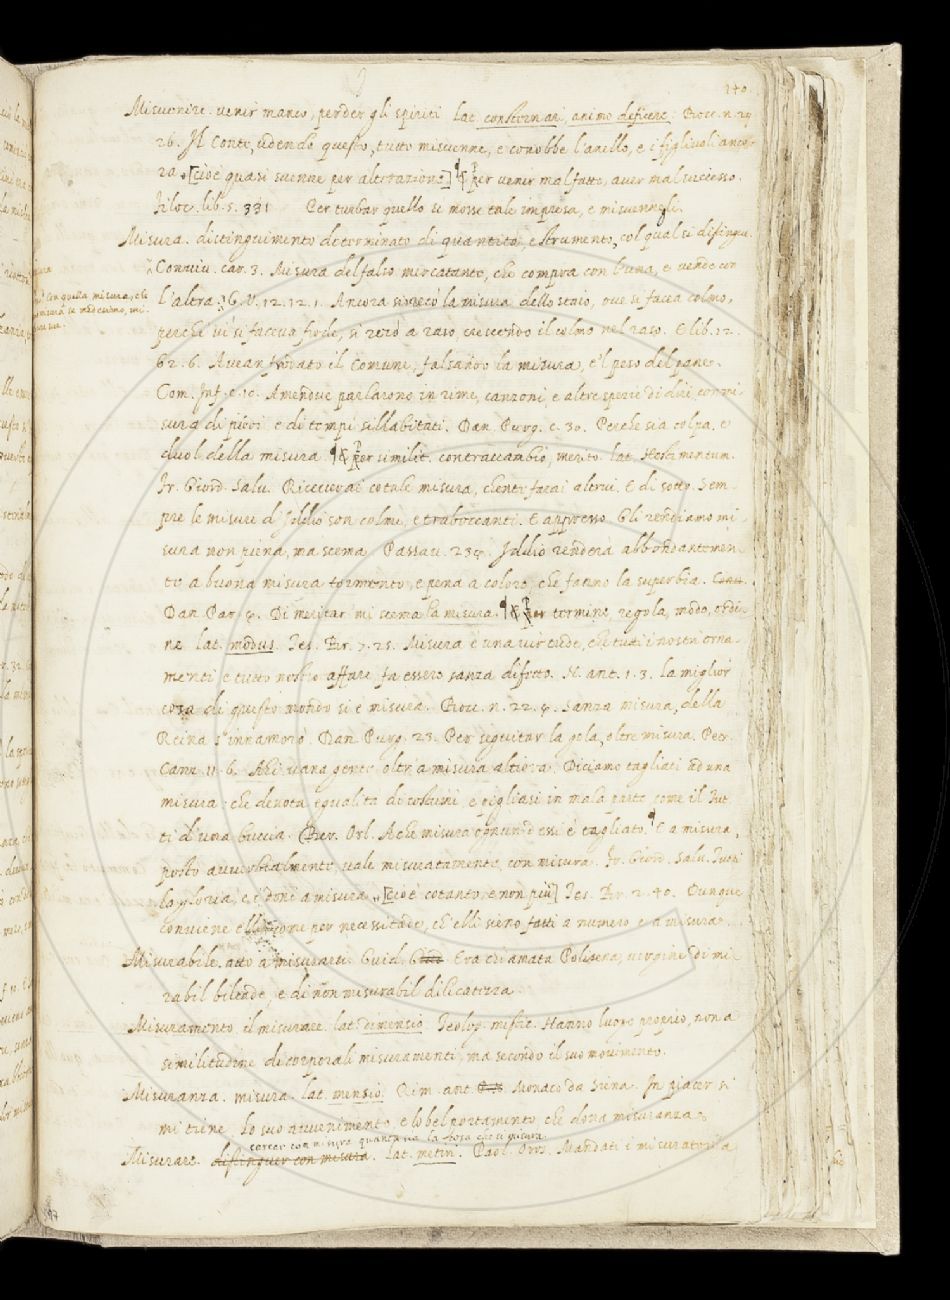 140
Misvenire. venir manco, perder gli spiriti lat. consternari, animo deficere. Bocc. n. 29
26. Il Conte, udendo questo, tutto misvenne, e conobbe l'anello, e i figlivoli anco-
ra [cioè quasi svenne per alterazione] ¶ & Per venir mal fatto, aver mal successo.
Filoc. lib. 5. 331 Per turbar quello si mosse tale impresa, e misvennegli.
Misura. distinguimento determinato di quantità, e strumento, col qual si distingue.
Conviv. car. 3. Misura del falso mercatante, che compra con l'una, e vende con
con quella misura, che
l'altra. G. V. 12. 12. 1. Ancora si recò la misura dello staio, ove si facea colmo,
perchè vi si faceva frode, si recò a raso, crescendo il colmo nel raso. E lib. 12.
62. 6. Avean trovato il Comune, falsando la misura, e 'l peso del pane.
Com. Inf. c. 10. Amendue parlarono in rime, canzoni, e altre spezie di dici, con mi-
sura di piedi, e di tempi sillabitati. Dan. Purg. c. 30. Perchè sia colpa, e
duol della misura. ¶ & Per similit. contraccambio, merito. lat. Hostimentum.
Fr. Giord. Salv. Riceverai cotale misura, chente farai altrui. E di sotto. Sem-
pre le misure d'Iddio son colme, e traboccanti. E appresso. Gli rendiamo mi-
sura non piena, ma scema. Passav. 234. Iddio renderà abbondantemen-
te a buona misura tormento, e pena a coloro, che fanno la superbia.
Dan. Par. 4. Di meritar mi scema la misura. ¶ & Per termine, regola, modo, ordi-
ne lat. modus. Tes. Br. 7. 25. Misura è una virtude, che tutti i nostri orna-
menti e tutto nostro affare fa essere sanza difetto. N. ant. 1. 3. la miglior
cosa di questo mondo si è misura. Bocc. n. 22. 4. Sanza misura, della
Reina s'innamorò. Dan. Purg. 23. Per seguitar la gola, oltre misura. Petr.
Canz. 11. 6. Ahi vana gente oltr'a misura altiera. Diciamo tagliati ad una
misura: che denota egualità di costumi e pigliasi in mala parte come il Tut-
ti d'una buccia. Ber. Orl. A che misura ognun d'essi è tagliato. ¶ E a misura,
posto avverbialmente, vale misuratamente, con misura. Fr. Giord. Salv. Tutti
la gloria, e i doni a misura [cioè cotanto, e non più] Tes. Br. 2. 40. Dunque
conviene elli come per necessitade, ch'elli siero fatti a numero e a misura.
Misurabile. atto a misurarsi. Guid. G. Era chiamata Polisena, vergine di mi-
rabil biltade, e di non misurabil dilicatezza.
Misuramento. il misurare. lat. dimensio. Teolog. mistic. Hanno luogo proprio, non a
similitudine di corporali misuramenti, ma secondo il suo movimento.
Misuranza. misura. lat. mensio. Rim. ant. Monaco da Siena. In piacer si
mi tiene lo suo avvenimento, e lo bel portamento, che dona misuranza.
cercar con misura quanta sia la cosa che si misura
Misurare. distinguer con misura. lat. metiri. Paol. Oros. Mandati i misuratori a